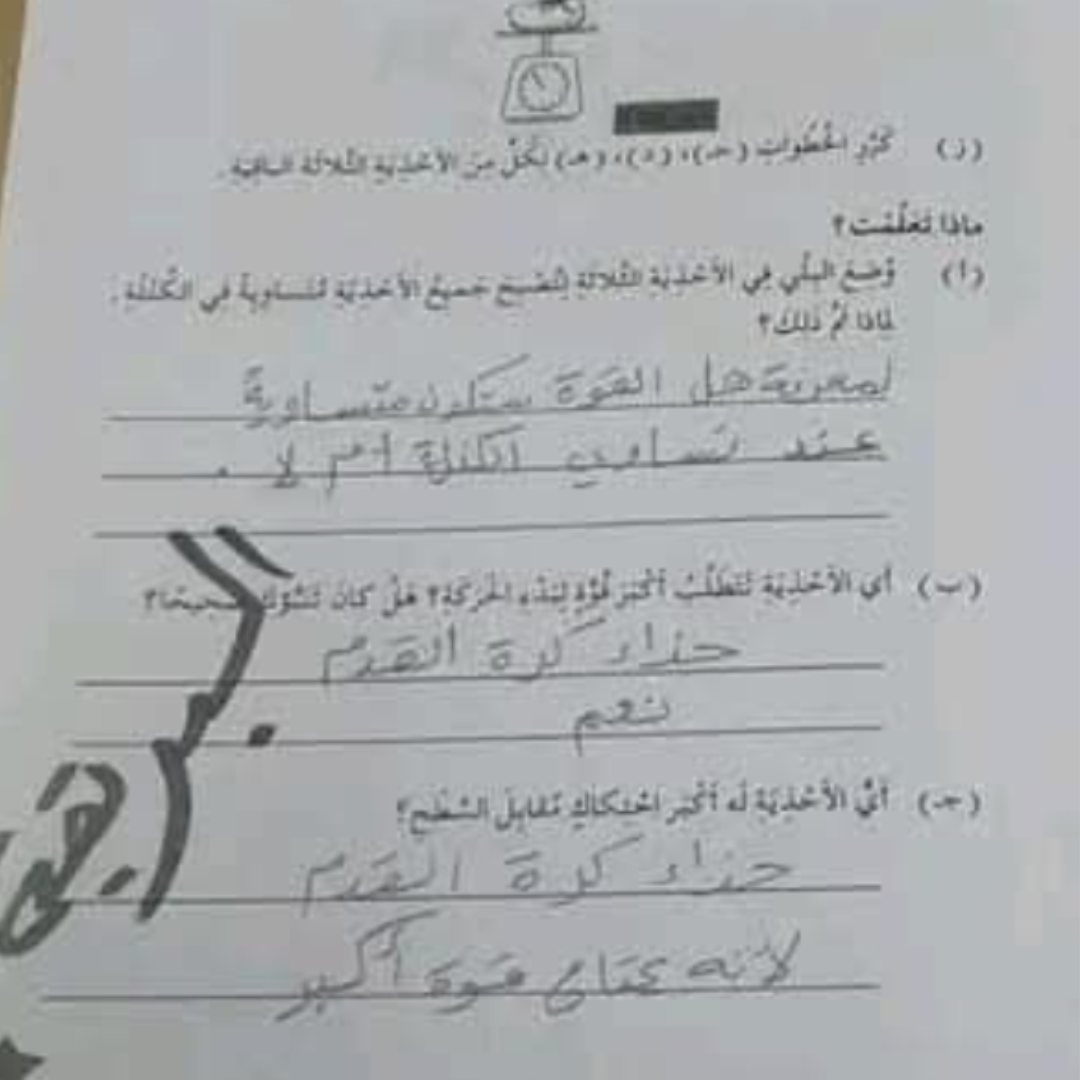 (ز) كَرِّرِ الخُطُواتِ (جـ)، (د)، (هـ) لِكُلٍّ مِنَ الأَحْذِيَةِ الثَّلاثَةِ الباقِيَةِ.
ماذا تَعَلَّمْت؟
(أ) وُضِعَ البِلْي فِي الأَحْذِيَةِ الثَّلاثَةِ لِتُصْبِحَ جَميعُ الأَحْذِيَةِ مُتَساوِيَةً في الكُتْلَةِ.
لِمَاذا تَمَّ ذَلِكَ؟
لمعرفة هل القوة ستكون متساوية
عند تساوي الكتلة أم لا.
(ب) أي الأَحْذِيَةِ تَتَطَلَّبُ أَكْبَرَ قُوَّةٍ لِبَدْءِ الحَرَكَةِ؟ هَلْ كانَ تَنَبُّؤك صَحيحًا؟
حذاء كرة القدم
نعم
(جـ) أَيُّ الأَحْذِيَةِ لَه أَكْبَر احْتِكاكٍ مُقابِلَ السَّطْحِ؟
حذاء كرة القدم
لأنه يحتاج قوة أكبر